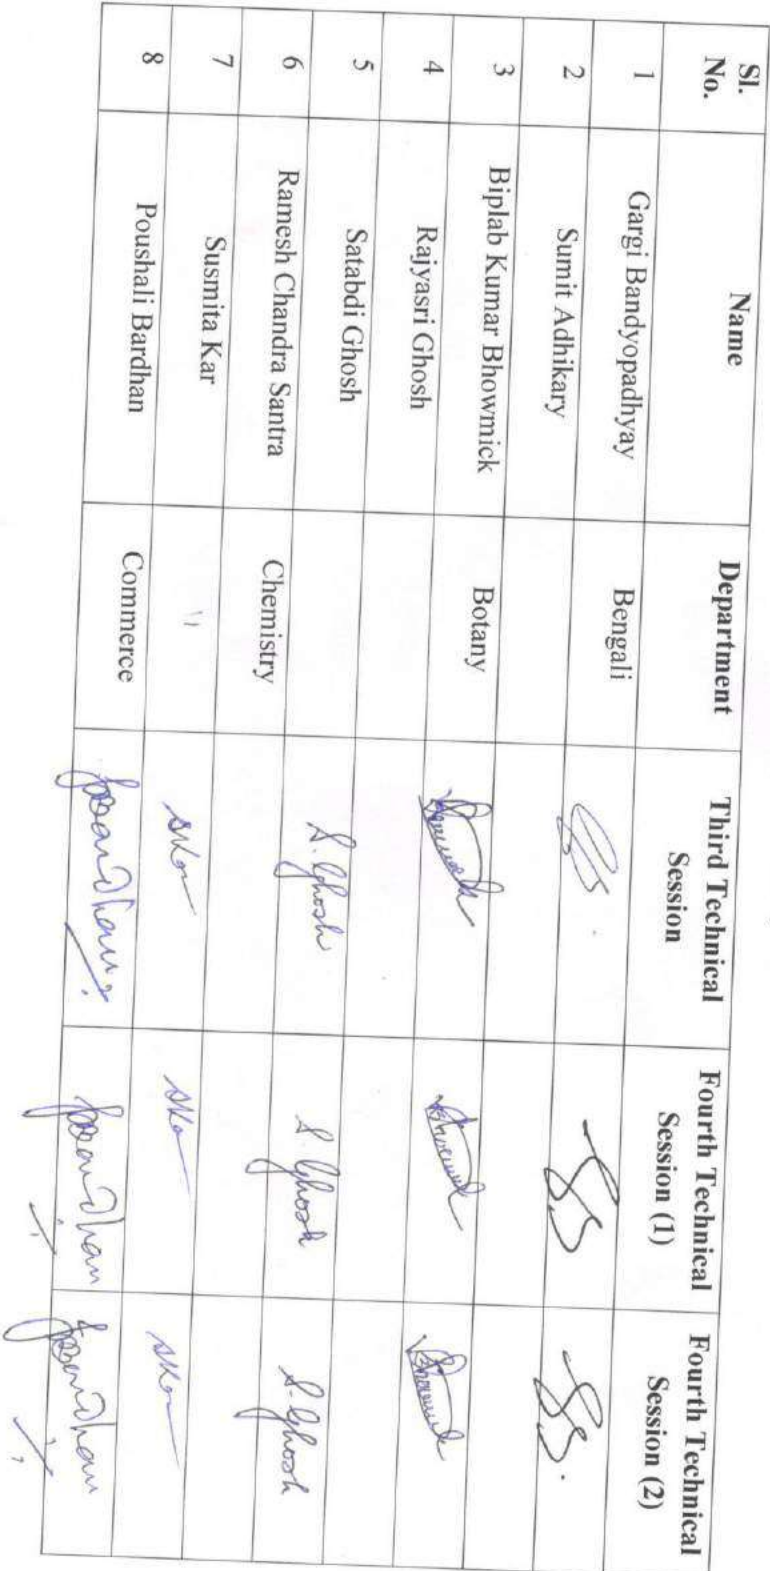 Sl. No. Name Department Third Technical Session Fourth Technical Session (1) Fourth Technical Session (2)
1 Gargi Bandyopadhyay Bengali
2 Sumit Adhikary
3 Biplab Kumar Bhowmick Botany
4 Rajyasri Ghosh
5 Satabdi Ghosh S. Ghosh S. Ghosh S. Ghosh
6 Ramesh Chandra Santra Chemistry
7 Susmita Kar " SKar SKar SKar
8 Poushali Bardhan Commerce